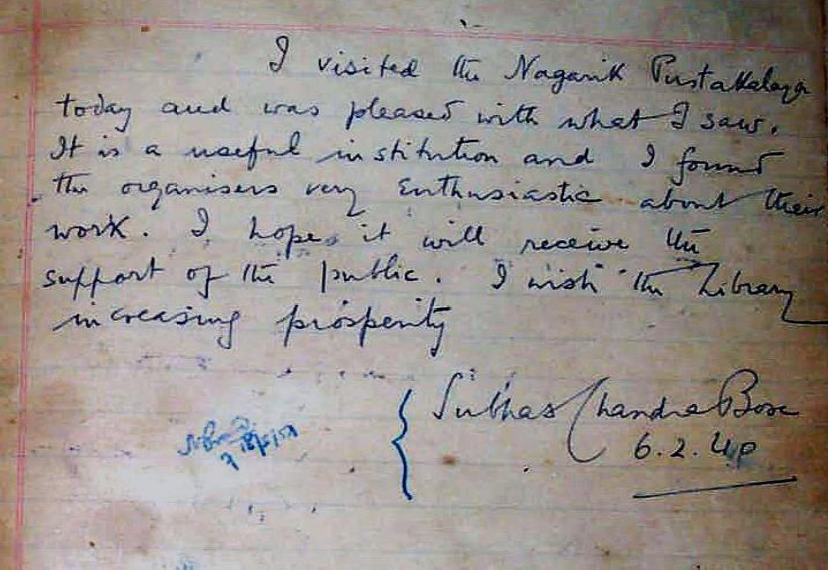 I visited the Nagarik Pustakalaya
today and was pleased with what I saw.
It is a useful institution and I found
the organisers very enthusiastic about their
work. I hope it will receive the
support of the public. I wish the Library
increasing prosperity
Subhas Chandra Bose
6.2.40